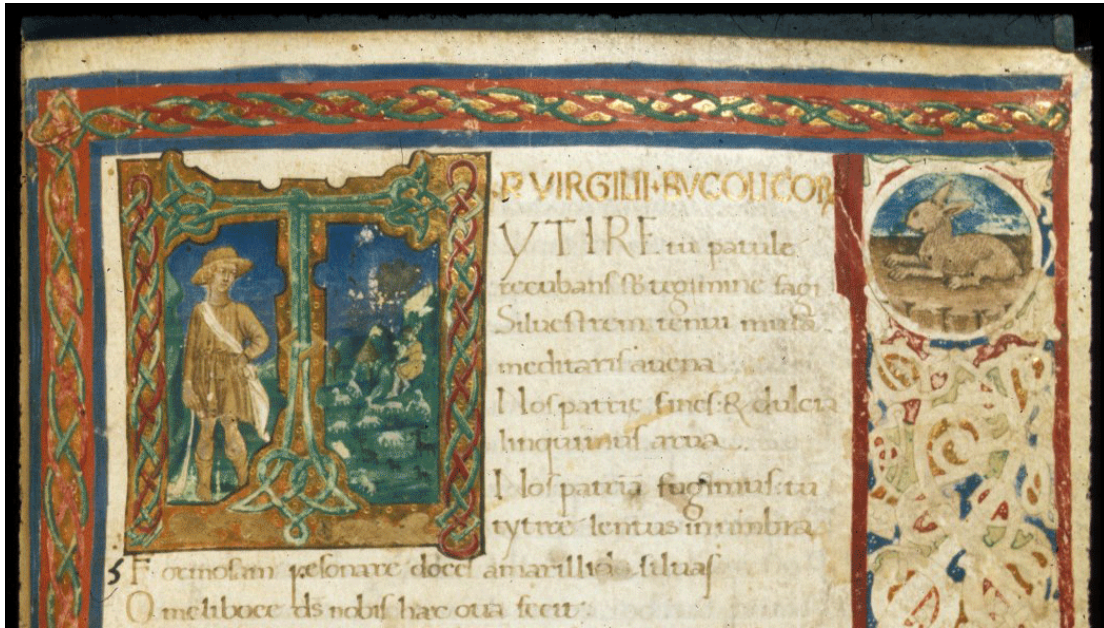 P. VIRGILII. BVCOLICOR
TYTIRE tu patule
recubans sub tegimine fagi
Siluestrem tenui musa
meditaris auena
Nos patrie fines: & dulcia
linquimus arua
Nos patriā fugimus: tu
tytire lentus in umbra
5 Formosam resonare doces amarillida siluas
O meliboee ds nobis haec otia fecit